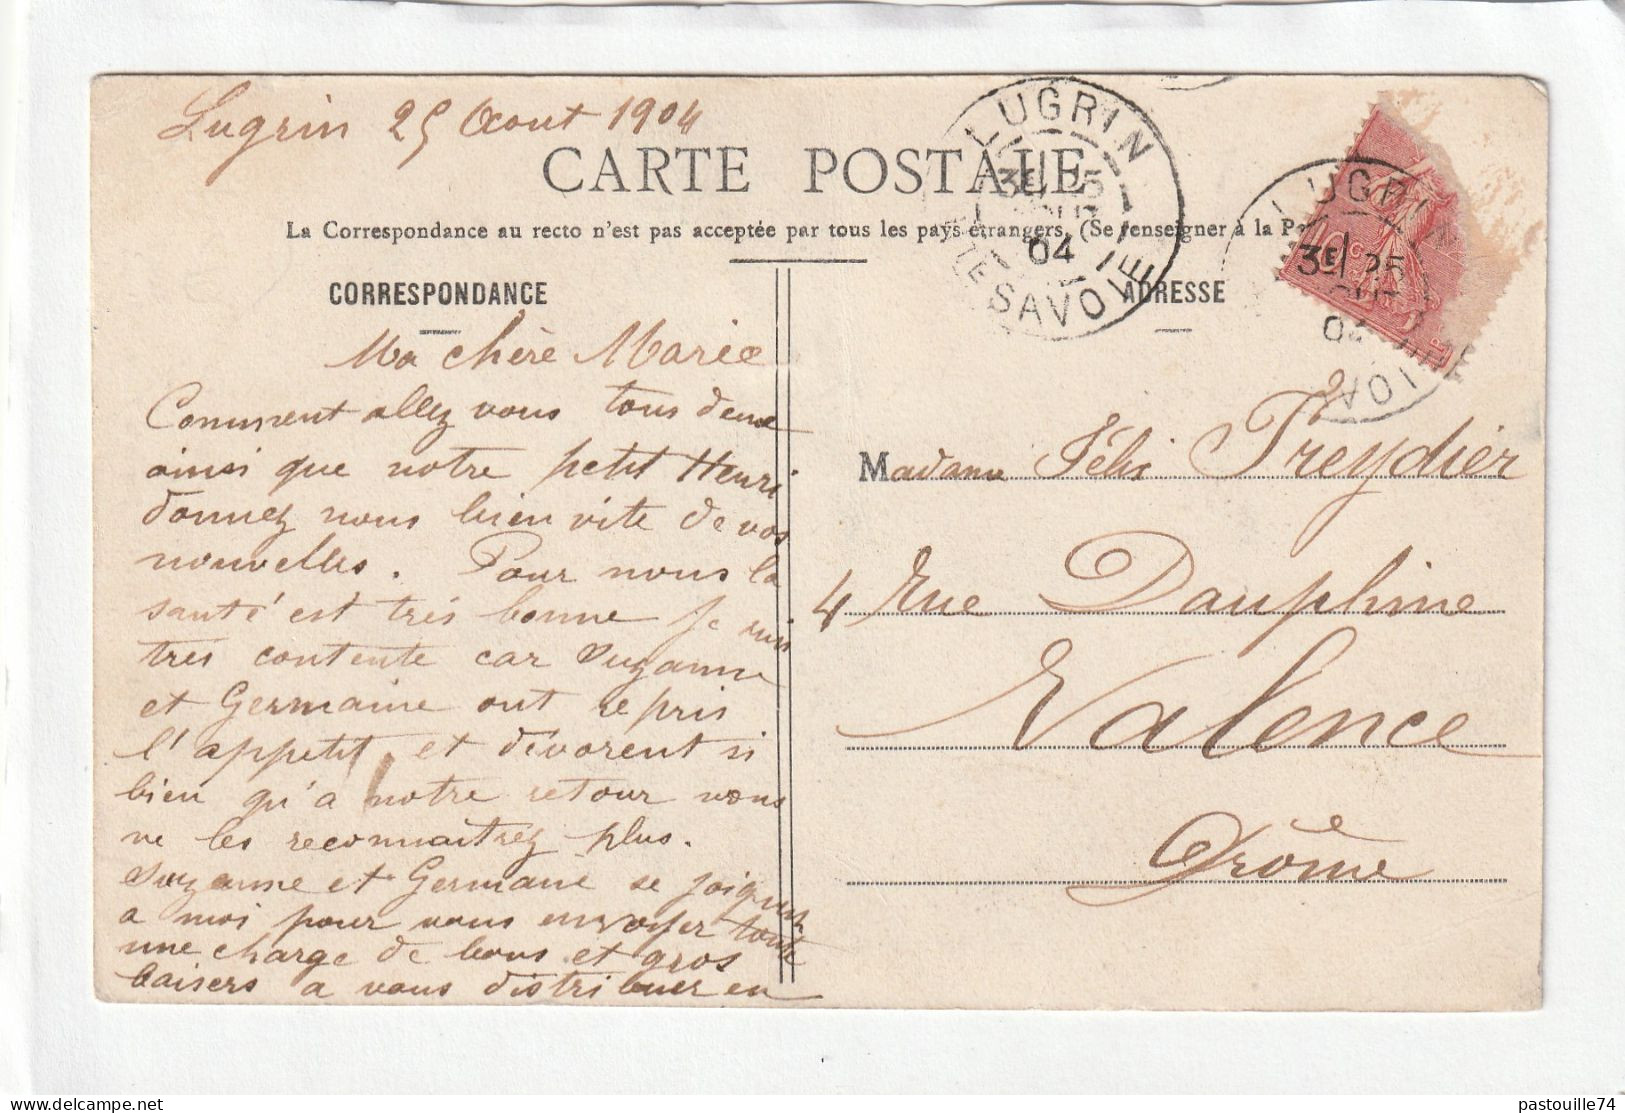 Lugrin 25 Aout 1904
LUGRIN
3E 25
04
HTE SAVOIE
CARTE POSTALE
La Correspondance au recto n'est pas acceptée par tous les pays étrangers, (Se renseigner à la P
CORRESPONDANCE
Ma chère Marie
Comment allez vous tous deux
ainsi que notre petit Henri
donnez nous bien vite de vos
nouvelles. Pour nous la
santé est très bonne je suis
très contente car Suzanne
et Germaine ont repris
l'appetit et dévorent si
bien qu'a notre retour vous
ne les reconnaitrez plus.
Suzanne et Germaine se joignent
a moi pour vous envoyer toute
une charge de bons et gros
baisers a vous distribuer en
ADRESSE
LUGRIN
3E 25
04
SAVOIE
Madame Félix Treydier
4 Rue Dauphine
Valence
Drôme
pastouille74